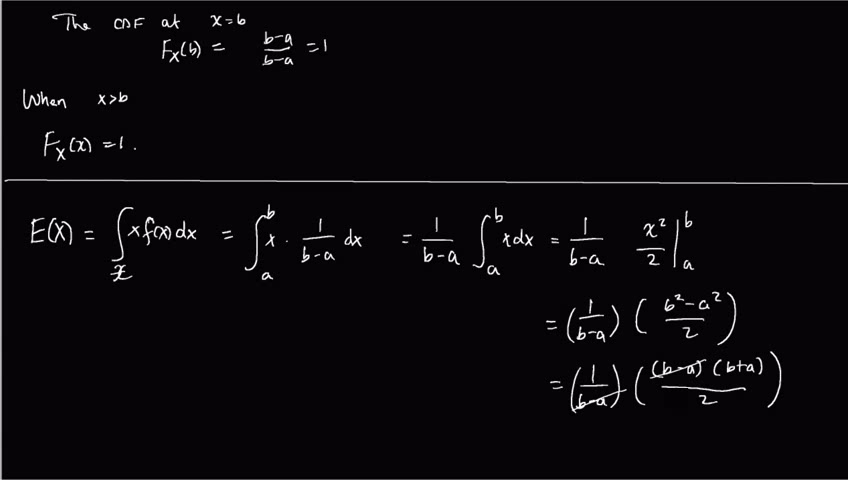 The CDF at x=b
F_X(b) = \frac{b-a}{b-a} = 1
When x>b
F_X(x) = 1.
E(X) = \int_{\mathcal{X}} x f(x) dx = \int_a^b x \cdot \frac{1}{b-a} dx = \frac{1}{b-a} \int_a^b x dx = \frac{1}{b-a} \frac{x^2}{2} \Big|_a^b
= \left( \frac{1}{b-a} \right) \left( \frac{b^2-a^2}{2} \right)
= \left( \frac{1}{b-a} \right) \left( \frac{(b-a)(b+a)}{2} \right)